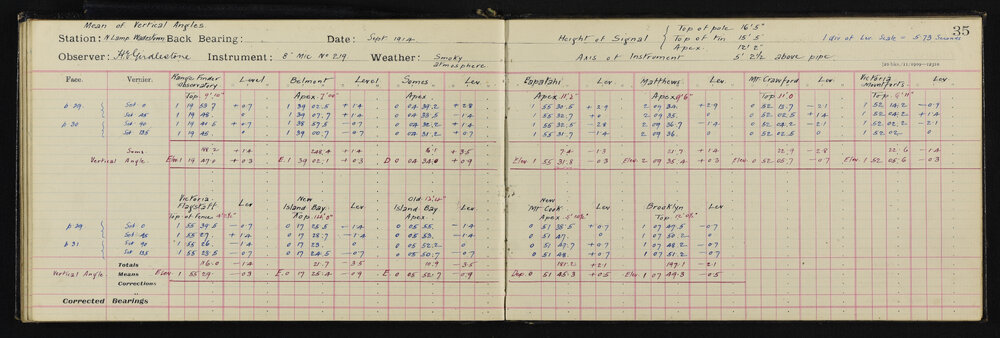 Mean of Vertical Angles.
Station: N Lamp Wadestown Back Bearing: Date: Sept 1914
Height of Signal { Top of pole 16' 5"
Top of tin 15' 5"
Apex. 12' 2"
1 div of Lev Scale = 5.73 Seconds
35
Observer: H E Girdlestone Instrument: 8" Mic No 219 Weather: Smoky atmosphere
Axis of Instrument 5' 2½ above pipe
Face. Vernier. Range Finder Observatory Level Belmont Level Somes Lev Papatahi Lev Matthews Lev. Mt. Crawford Lev. Victoria Lev.
Top. 9' 10" Apex. Apex. Apex 11' 2" Apex 9' 6" Top. 11' 0 Top.
p 29. Set 0 1 19 53.7 +0.7 1 39 02.5 +1.4 0 04 39.2 +2.8 1 55 30.5 +2.9 2 09 34. +2.9 0 52 13.7 -2.1 1 52 14.2 -0.7
Set 45 1 19 48. 0 1 39 07.7 +1.4 0 04 33.5 -1.4 1 55 32.7 +0 2 09 35. 0 0 52 02.5 +1.4 1 52 04.2 +1.4
p 30 Set 90 1 19 41.5 +0.7 1 38 57.5 -0.7 0 04 32.2 +1.4 1 55 32.5 -2.8 2 09 36.7 -1.4 0 52 04.2 -2.1 1 52 02.2 -2.1
Set 135 1 19 45. 0 1 39 00.7 -0.7 0 04 31.2 +0.7 1 55 31.7 -1.4 2 09 36. 0 0 52 02.5 0 1 52 02. 0
Sums. 188.2 +1.4 248.4 +1.4 +3.5 7.4 -1.3 21.7 +1.4 22.9 -2.8 22.6 -1.4
Vertical Angle Elev 1 19 47.0 +0.3 E. 1 39 02.1 +0.3 D 0 04 34.0 +0.9 Elev 1 55 31.8 -0.3 Elev. 2 09 35.4 +0.3 Elev 0 52 05.7 -0.7 Elev. 1 52 05.6 -0.3
Victoria Flagstaff Lev New Island Bay. Lev. Old Island Bay Lev. New Mt Cook Lev Brooklyn Lev
Top of fence Top. Apex. Apex. Top
p 29 Set 0 1 55 39.5 -0.7 0 17 25.5 -1.4 0 05 55. -1.4 0 51 38.5 +0.7 1 07 49.5 -0.7
Set 45 1 55 27. +1.4 0 17 28.7 -1.4 0 05 53. -1.4 0 51 47. 0 1 07 50.2 0
p 31 Set 90 1 55 26. -1.4 0 17 23. 0 0 05 52.2 0 0 51 47.7 +0.7 1 07 48.2 -0.7
Set 135 1 55 23.5 -0.7 0 17 24.5 -0.7 0 05 50.7 -0.7 0 51 48. +0.7 1 07 51.2 -0.7
Totals 116.0 -1.4 21.7 -3.5 10.9 -3.5 181.2 +2.1 199.1 -2.1
Vertical Angle. Means Elev 1 55 29. -0.3 E. 0 17 25.4 -0.9 E. 0 05 52.7 -0.9 Dep. 0 51 45.3 +0.5 Elev. 1 07 49.3 -0.5
Corrections
Corrected Bearings